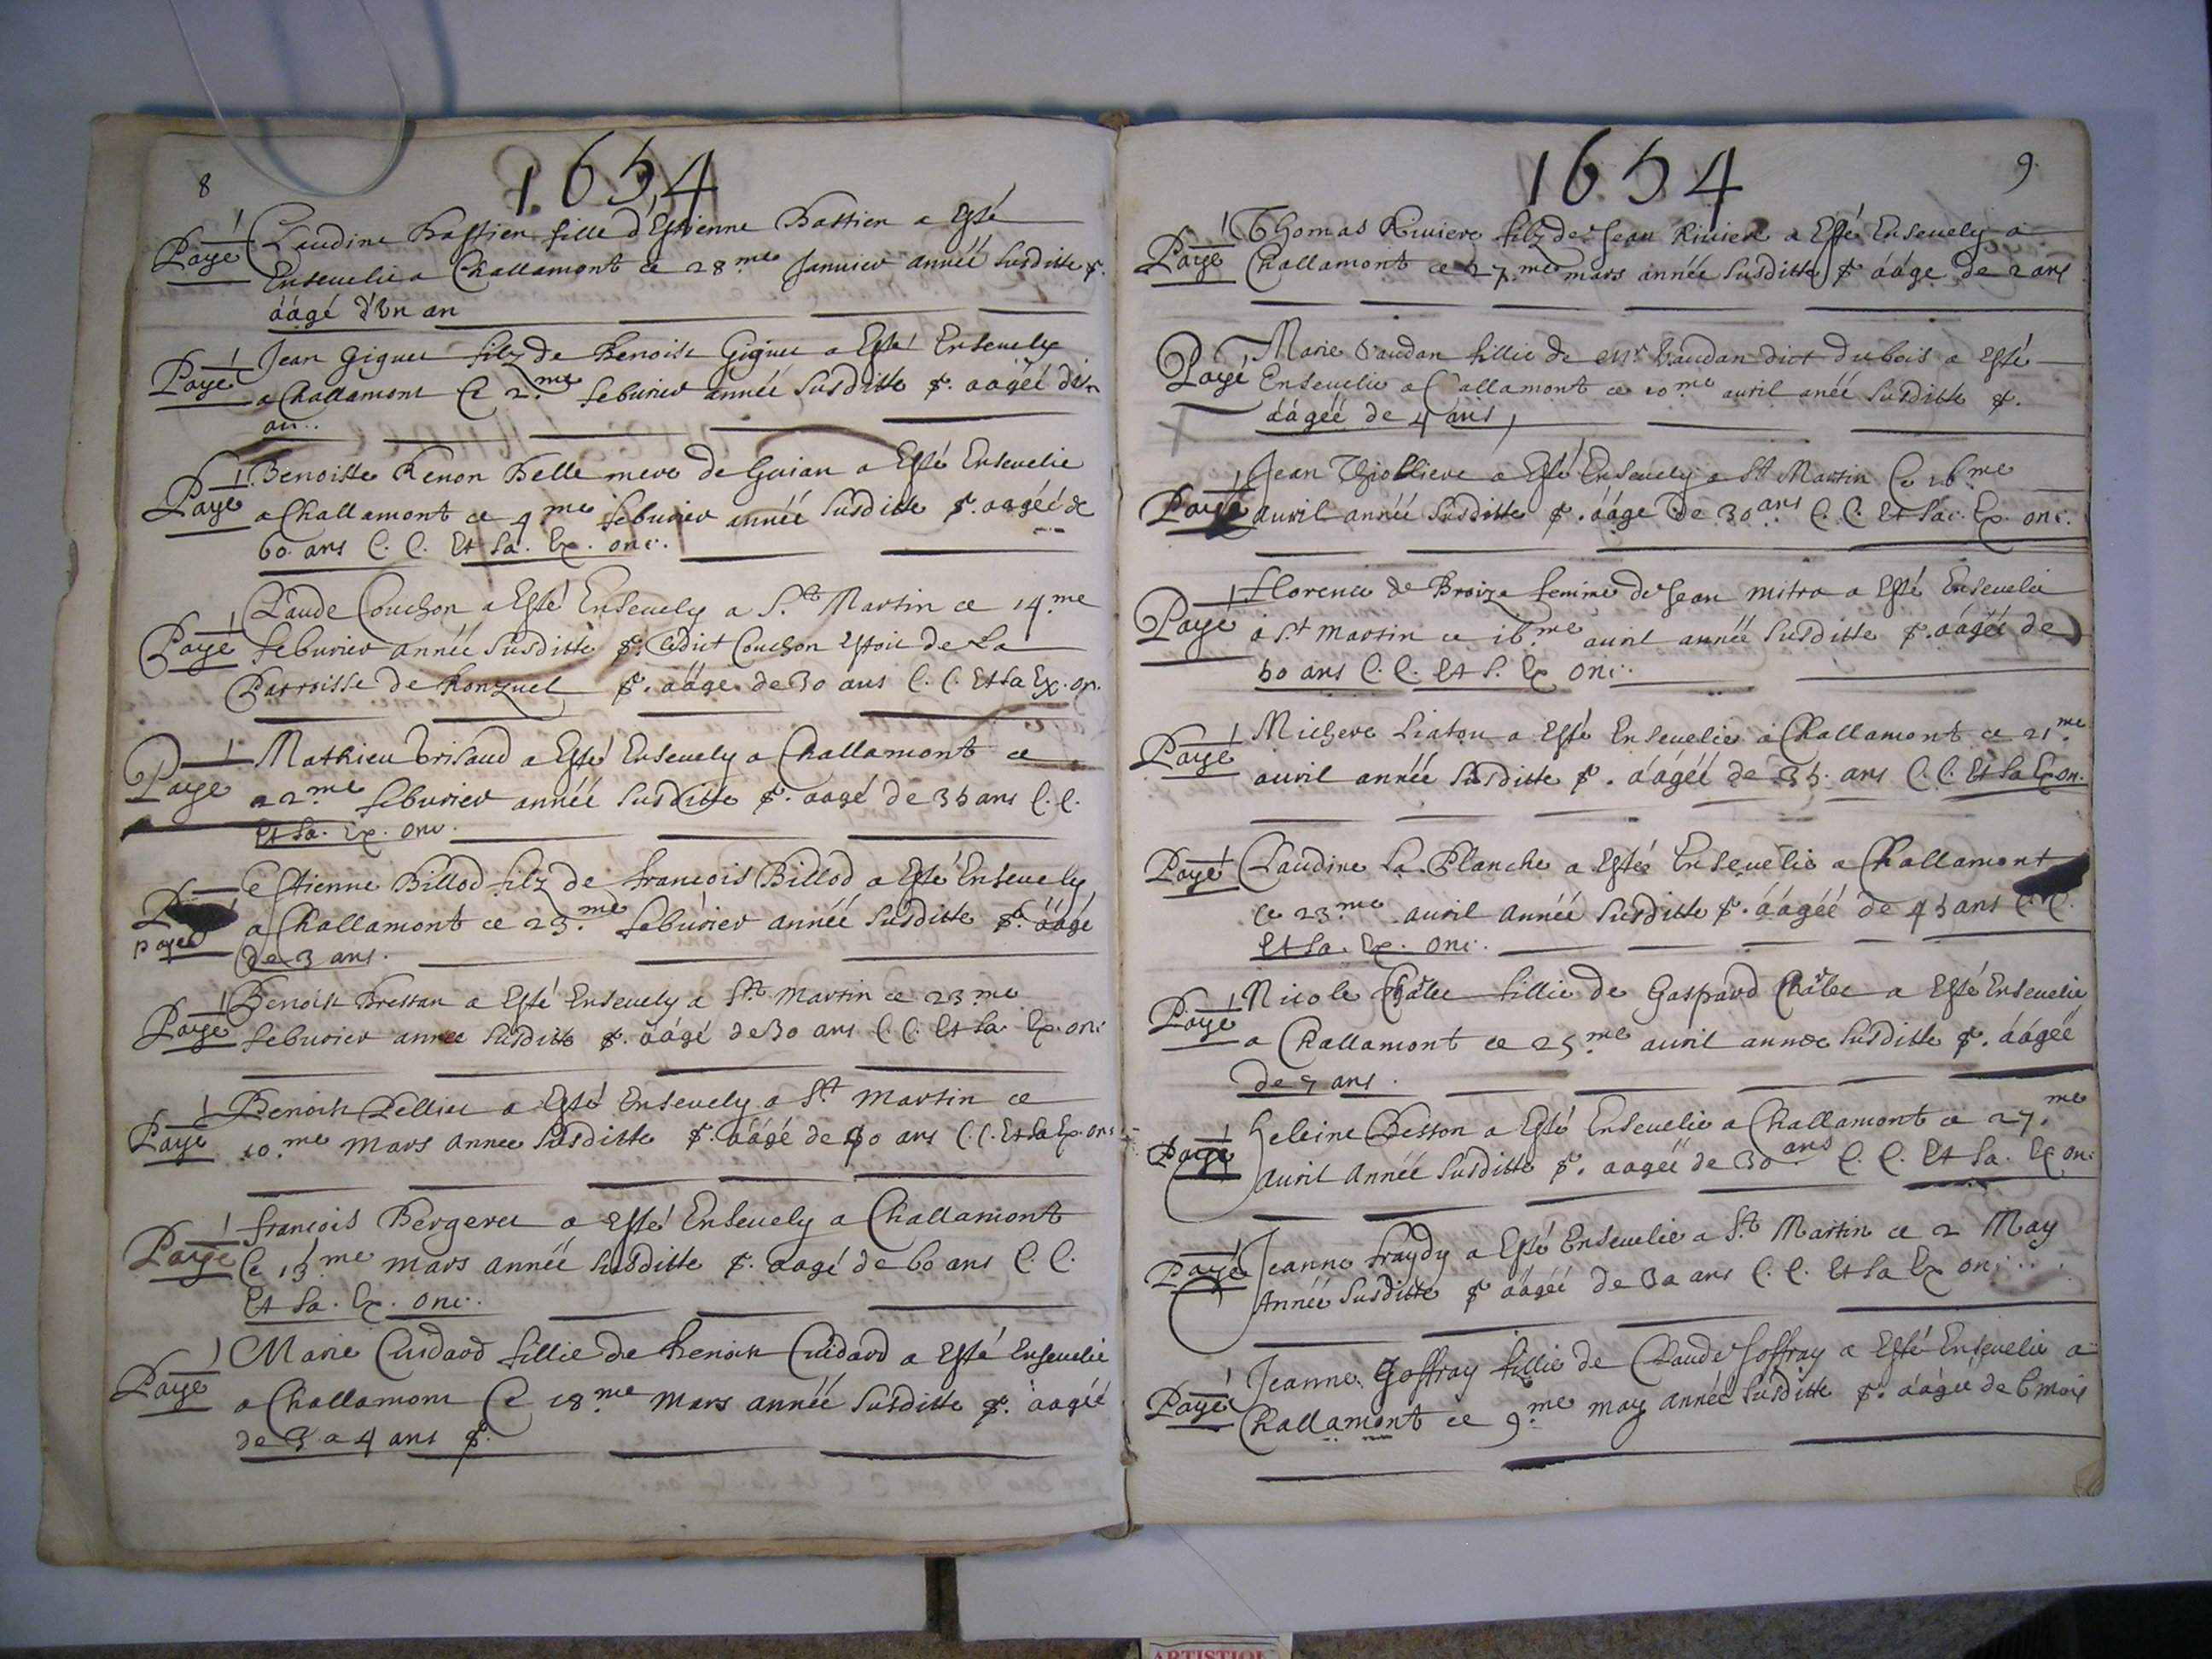 8
1654
Payé Claudine Bastien fille d'Estienne Bastien a Esté
Enseuelie a Challamont ce 28.me Januier année Susditte &.
áágé d'Vn an
Payé Jean Giguet filz de Benoist Giguet a Esté Enseuely
a Challamont Ce 2.me feburier année Susditte &. aagéé d'Vn
an..
Paye Benoiste Renon Belle mere de Guian a Esté Enseuelie
a Challamont ce 4me feburier année Susditte &. aagéé de
60. ans C. C. Et Sa. Ex. onc.
Claude Couchon a Esté Enseuely a S.t Martin ce 14.me
Payé feburier année Susditte &. Ledict Couchon Estoit de La
Parroisse de Ronzuel &. aáge de 30 ans C. C. Et Sa Ex. on.
Mathieu Brisaud a Esté Enseuely a Challamont ce
Paye 22.me feburier année Susditte &. aagé de 35 ans C. C.
Et Sa. Ex. onc.
Estienne Billod filz de francois Billod a Esté Enseuely
payé a Challamont ce 23.me feburier année Susditte &. áágé
de 3 ans.
Benoist Bressan a Esté Enseuely a St Martin ce 23.me
Paye feburier annee Susditte &. áágé de 30 ans C. C. Et Sa. Ex. onc
Benoist Pellier a Esté Enseuely a St Martin ce
Paye 10.me Mars Annee Susditte &. áágé de 40 ans C. C. Et Sa Ex. onc
francois Bergeret a Esté Enseuely a Challamont
Paye Ce 15me Mars année Susditte &. aagé de 60 ans C. C.
Et Sa. Ex. onc.
Marie Cuidard fillie de Benoist Cuidard a Esté Enseuelie
Paye a Challamont Ce 18.me Mars année Susditte &. áagéé
de 3 a 4 ans &.
1654
9.
Thomas Riuiere filz de Jean Riuiere a Esté Enseuely a
Paye Challamont ce 27.me mars année Susditte &. áágé de 2 ans
Marie Vaudan fillie de Vaudan dict dubois a Esté
Payé Enseuelie a Challamont ce 10me auril anéé Susditte &.
áágéé de 4 ans
Jean Thiolliere a Esté Enseuely a St Martin Ce 16me
Paye auril année Susditte &. áágé De 30 ans C. C. Et Sac. Ex. onc.
florence de Broize femme de Jean mitra a Esté Enseuelie
Paye a St Martin ce 16me auril année Susditte &. áágéé de
50 ans C. C. Et S. Ex onc.
Michere Liaton a Esté Enseuelie a Challamont ce 21.me
Payé auril année Susditte &. áágéé de 35. ans C. C. Et Sa Ex on.
Payé Claudine La Planche a Esté Enseuelie a Challamont
Ce 23me auril Année Susditte &. áágéé de 45 ans C. C.
Et Sa. Ex. onc.
Nicole fillie de Gaspard a Esté Enseuelie
Paye a Challamont ce 25.me auril année Susditte &. áágéé
de 7 ans.
Heleine Besson a Esté Enseuelie a Challamont ce 27.me
Paye Auril Année Susditte &. aagéé de 30 ans C. C. Et Sa. Ex onc
Jeanne fraydy a Esté Enseuelie a St Martin ce 2 May
Payé Année Susditte & áágéé de 30 ans C. C. Et Sa Ex onc..
Jeanne Joffray fillie de Claude Joffray a Esté Enseuelie a
Payé Challamont ce 9.me may année Susditte &. áágéé de 6 mois
ARTISTIQU